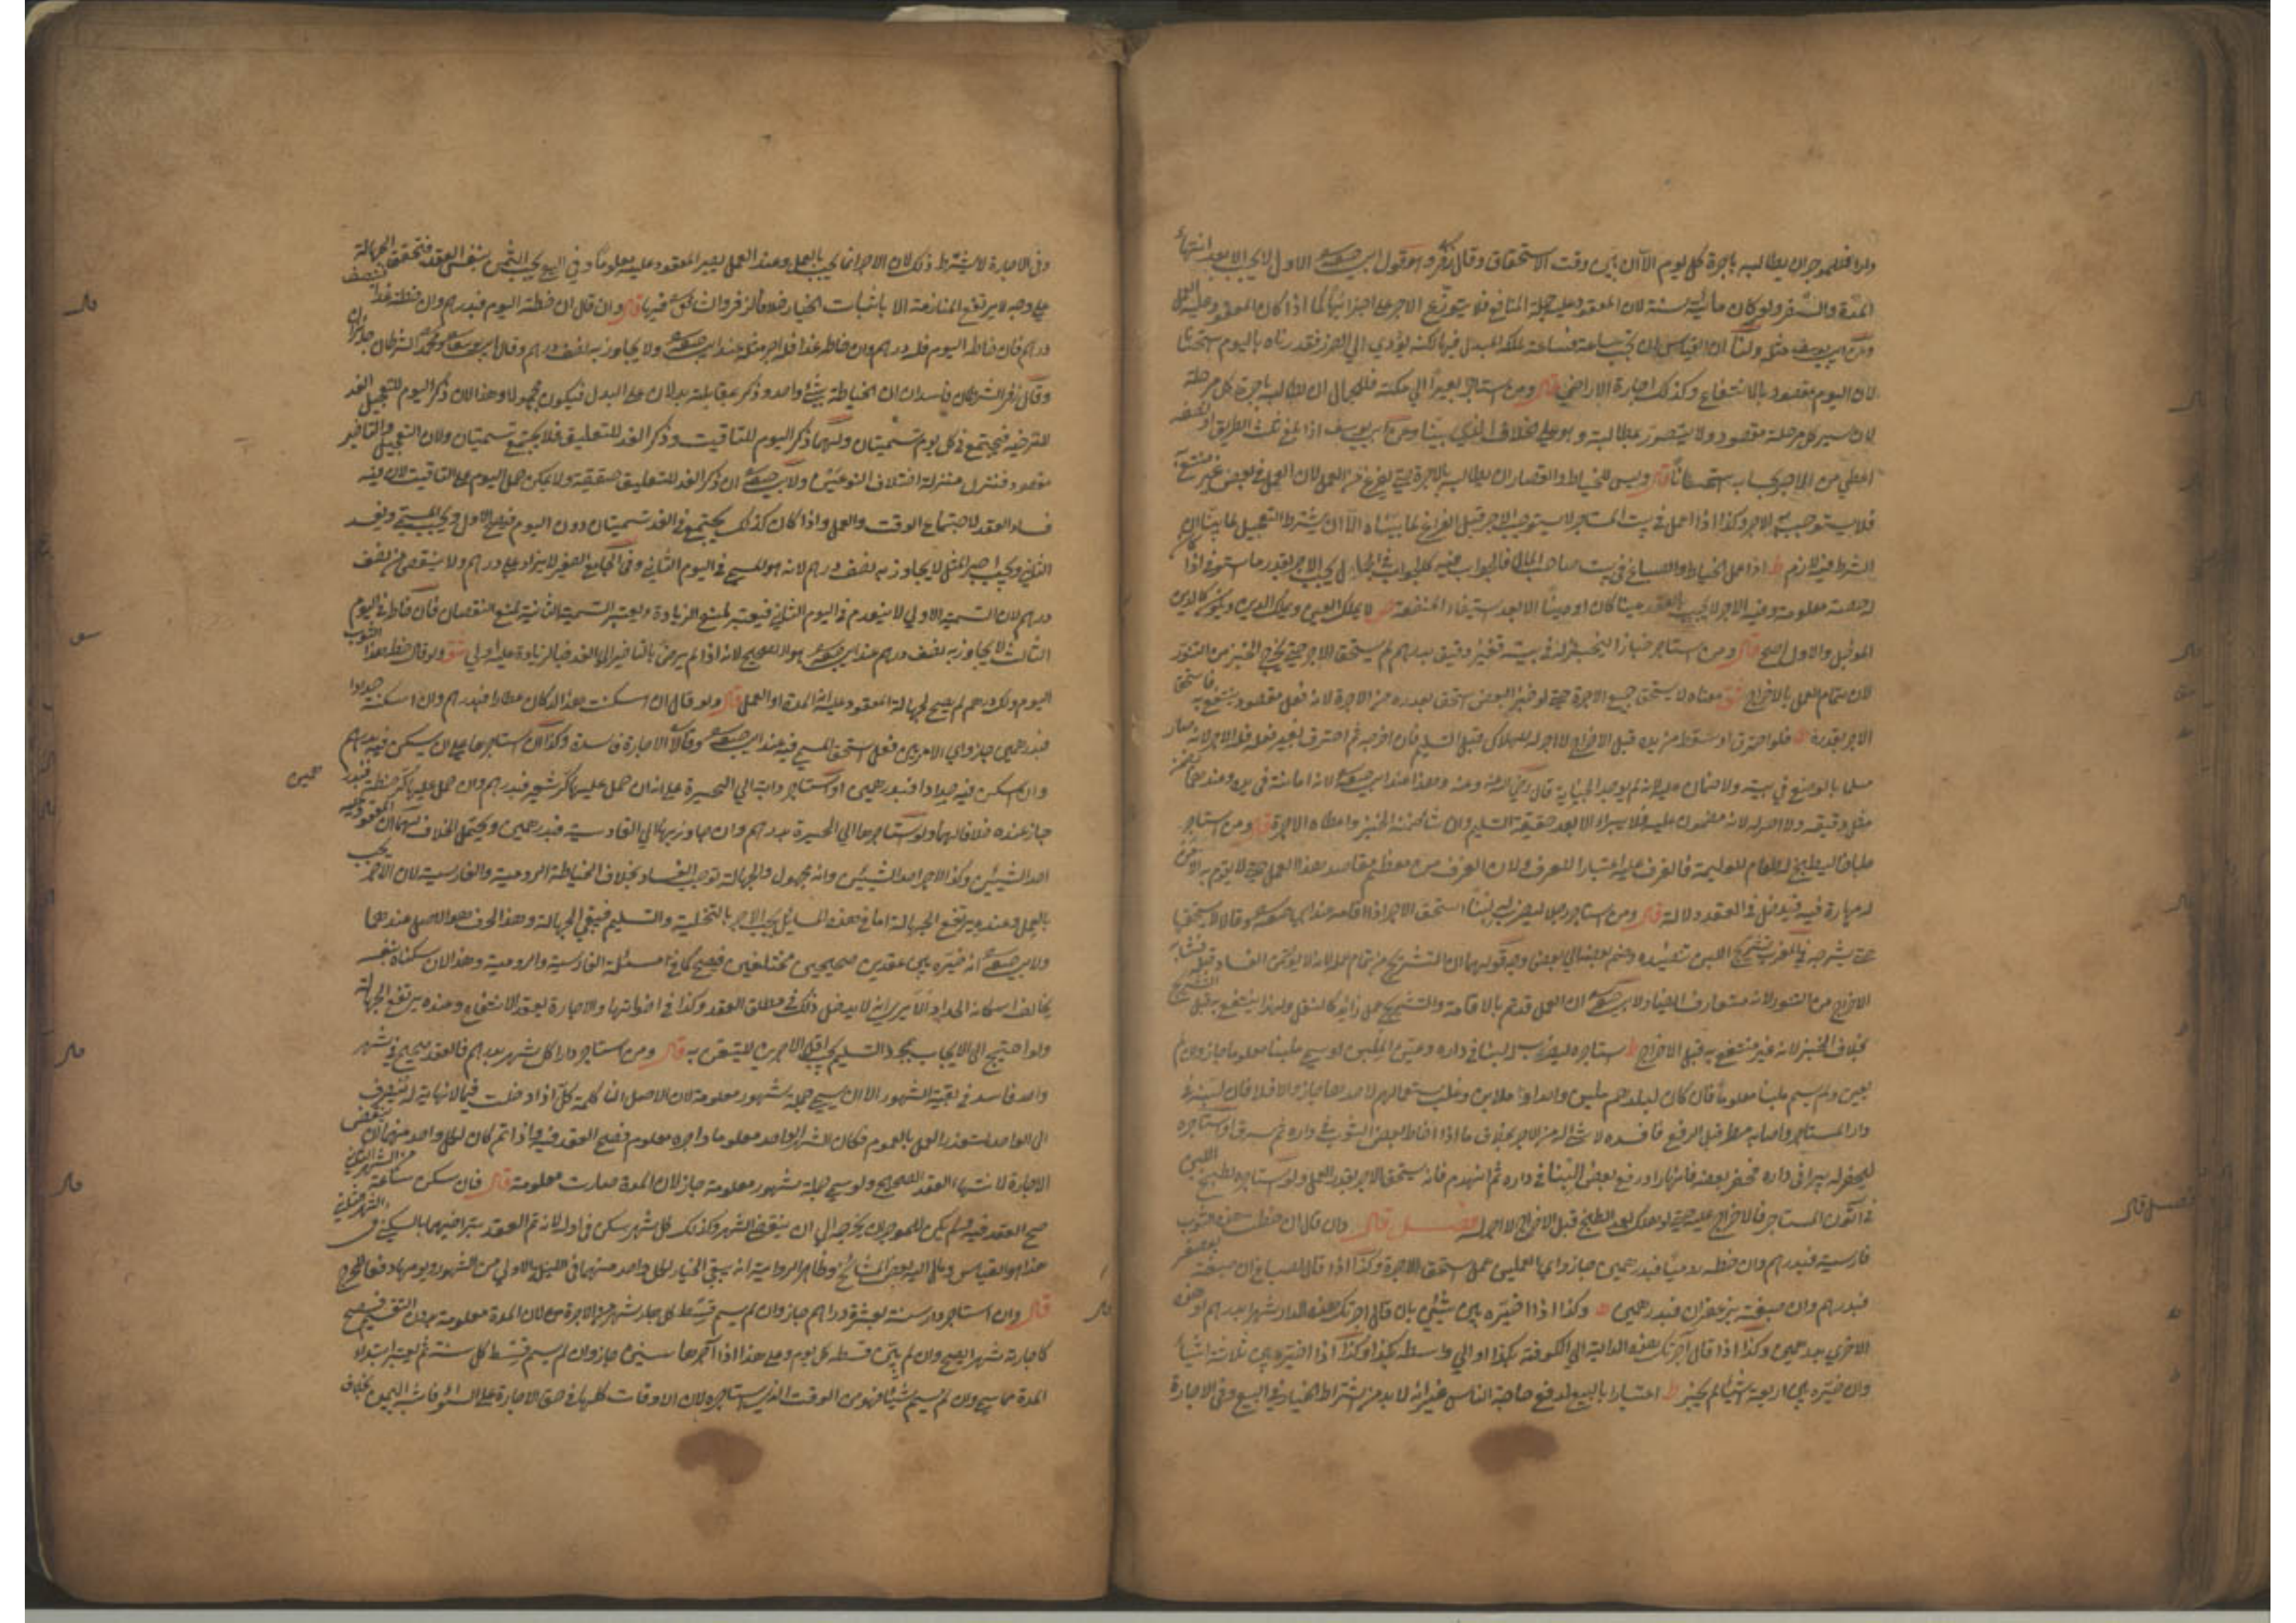 دارا فللموجر ان يطالبه باجرة كل يوم الا ان يبين وقت الاستحقاق وقال زفر وهو قول ابي حنيفة الاول لا يجب الا بعد انتهاء
المدة والسفر ولو كان مائة سنة لان المعقود عليه جملة المنافع فلا يتوزع الاجر على اجزائها كما اذا كان المعقود عليه العمل
وعن ابي يوسف مثله ولنا ان القياس ان تجب ساعة فساعة لكنه يؤدي الى الحرج فقدرناه باليوم استحسانا
لان اليوم مقصود بالانتفاع وكذلك اجارة الاراضي قال ومن استاجر بعيرا الى مكة فللجمال ان يطالبه باجرة كل مرحلة
لان سير كل مرحلة مقصود ولا يتصور مطالبته وهو على الخلاف الذي بينا وعن ابي يوسف اذا بلغ ثلث الطريق او نصفه
اعطي من الاجر بحسابه استحسانا قال وليس للخياط والقصار ان يطالب بالاجرة حتى يفرغ من العمل لان العمل في بعض غير منتفع
فلا يستوجب به الاجر وكذا اذا عمل في بيت المستاجر لا يستوجب الاجر قبل الفراغ لما بيناه الا ان يشترط التعجيل لما بينا ان
الشرط فيه لازم اذا عمل الخياط والصباغ في بيت صاحب المال فالجواب فيه يجب الاجر بقدر ما استوفى اذا كان
له حصة معلومة وفيه الاجر لا يجب بالعقد عينا كان او دينا الا بعد استيفاء المنفعة لا يملك العين ويملك الدين ويكون كالدين
المؤجل والاول اصح قال ومن استاجر خبازا ليخبز له في بيته قفيز دقيق بدرهم لم يستحق الاجر حتى يخرج الخبز من التنور
لان تمام العمل بالاخراج معناه لا يستحق جميع الاجرة حتى لو خبز البعض استحق بقدره من الاجرة لانه فعل مقصود ينتفع به فاستحق
الاجر بقدره فلو احترق او سقط من يده قبل الاخراج لا اجر له للهلاك قبل التسليم فان اخرجه ثم احترق بغير فعله فله الاجر لانه صار
مسلما بالوضع في بيته ولا ضمان عليه لانه لم يوجد الجناية قال رضي الله عنه وهذا عند ابي حنيفة لانه امانة في يده وعندهما يضمن
مثل دقيقه ولا اجر له لانه مضمون عليه فلا يبرا الا بعد حقيقة التسليم وان شاء ضمنه الخبز واعطاه الاجرة قال ومن استاجر
طباخا ليطبخ له طعام للوليمة فالغرف عليه اعتبارا للعرف ولان الغرف من معظم مقاصد هذا العمل حتى لا يقوم به الا من
له مهارة فيه فيدخل في العقد دلالة قال ومن استاجر رجلا ليضرب له لبنا استحق الاجر اذا اقامه عند ابي حنيفة وقالا لا يستحقها
حتى يشرجه في المغرب تشريج اللبن تنضيده وضم بعضه الى بعض وجه قولهما ان التشريج من تمام عمله لانه لا يؤمن الفساد قبله فشابه
الاخراج من التنور لانه متعارف المعتاد ولابي حنيفة ان العمل قد تم بالاقامة والتشريج عمل زائد كالنقل ولهذا ينتفع به قبل التشريج
بخلاف الخبز لانه غير منتفع به قبل الاخراج استاجره ليضرب له لبنا في داره وعين الملبن او سمى ملبنا معلوما جاز وان لم
يعين ولم يسم ملبنا معلوما فان كان لبلدهم ملبن واحد او ملابن وغلب استعمالهم لاحدها جاز والا فلا فان لبنه في
دار المستاجر واصابه مطر قبل الرفع فافسده لا شيء له من الاجر بخلاف ما اذا خاط بعض الثوب في داره ثم سرق او استاجره
ليحفر له بيرا في داره فحفر بعضه فانهار او رفع بعض البنا في داره ثم انهدم فانه يستحق الاجر بقدر العمل ولو استاجره لطبخ اللبن
في اتون المستاجر فالاخراج عليه حتى لو هلك بعد الطبخ قبل الاخراج لا اجر له فصل قال وان قال ان خطت هذا الثوب
فارسية فبدرهم وان خطته رومية فبدرهمين جاز واي العملين عمل استحق الاجرة وكذا اذا قال للصباغ ان صبغته بعصفر
فبدرهم وان صبغته بزعفران فبدرهمين وكذا اذا خيره بين شيئين بان قال اجرتك هذه الدار شهرا بدرهم او هذه
الاخرى بدرهمين وكذا اذا قال آجرتك هذه الدابة الى الكوفة بكذا او الى واسط بكذا وكذا اذا خيره بين ثلاثة اشياء
وان خيره بين اربعة اشيا لم يجز اعتبارا بالبيع لدفع حاجة الناس غير انه لا بد من اشتراط الخيار في البيع وفي الاجارة
وفي الاجارة لا يشترط ذلك لان الاجر انما يجب بالعمل وعند العمل يصير المعقود عليه معلوما وفي البيع يجب الثمن بنفس العقد فتحقق الجهالة
على وجه لا يرتفع المنازعة الا باثبات الخيار خلافا لزفر والشافعي فيها قال وان قال ان خطته اليوم فبدرهم وان خطته غدا فبنصف
درهم فان خاطه اليوم فله درهم وان خاطه غدا فله اجر مثله عند ابي حنيفة ولا يجاوز به نصف درهم وقال ابو يوسف ومحمد الشرطان جايزان
وقال زفر الشرطان فاسدان لان الخياطة شيء واحد وذكر بمقابلته بدلان على البدل فيكون مجهولا وهذا لان ذكر اليوم للتعجيل وذكر الغد
للترفيه فيجتمع في كل يوم تسميتان ولهما ان ذكر اليوم للتاقيت وذكر الغد للتعليق فلا يجتمع تسميتان ولان التعجيل والتاخير
مقصود فنزل منزلة اختلاف النوعين ولابي حنيفة ان ذكر الغد للتعليق حقيقة ولا يمكن حمل اليوم على التاقيت لان فيه
فساد العقد لاجتماع الوقت والعمل واذا كان كذلك يجتمع في الغد تسميتان دون اليوم فيصح الاول ويجب المسمى ويفسد
الثاني ويجب اجر المثل لا يجاوز به نصف درهم لانه هو المسمى في اليوم الثاني وفي الجامع الصغير لا يزاد على درهم ولا ينقص من نصف
درهم لان التسمية الاولى لا ينعدم في اليوم الثاني فيعتبر لمنع الزيادة ويعتبر التسمية الثانية لمنع النقصان فان خاطه في اليوم
الثالث لا يجاوز به نصف درهم عند ابي حنيفة هو الصحيح لانه اذا لم يرض بالتاخير الى الغد فبالزيادة عليه اولى ولو قال خط هذا الثوب
اليوم ولك درهم لم يصح لجهالة المعقود عليه انه المدة او العمل قال ولو قال ان اسكنت هذا الدكان عطارا فبدرهم وان اسكنته حدادا
فبدرهمين جاز واي الامرين فعل استحق المسمى فيه عند ابي حنيفة وقالا الاجارة فاسدة وكذا ان استاجر بيتا على ان يسكن فيه بدرهم
وان اسكن فيه حدادا فبدرهمين او استاجر دابة الى الحيرة على انه ان حمل عليها كر شعير فبدرهم وان حمل عليها كر حنطة فبدرهمين
جاز عنده خلافا لهما ولو استاجرها الى الحيرة بدرهم وان جاوز بها الى القادسية فبدرهمين ويحتمل الخلاف لهما ان المعقود عليه
احد الشيئين وكذا الاجر احد الشيئين وانه مجهول والجهالة توجب الفساد بخلاف الخياطة الرومية والفارسية لان الاجر يجب
بالعمل وعنده يرتفع الجهالة اما في هذه المسايل يجب الاجر بالتخلية والتسليم فيبقى الجهالة وهذا الحرف هو الاصل عندهما
ولابي حنيفة انه خيره بين عقدين صحيحين مختلفين فيصح كما في مسئلة الفارسية والرومية وهذا لان سكناه بنفسه
يخالف اسكانه الحداد الا يرى انه لا يدخل ذلك في مطلق العقد وكذا في اخواتها والاجارة يعقد للانتفاع وعنده يرتفع الجهالة
ولو احتيج الى الايجاب بمجرد التسليم يجب اقل الاجرين للتيقن به قال ومن استاجر دارا كل شهر بدرهم فالعقد صحيح في شهر
واحد فاسد في بقية الشهور الا ان يسمي جملة شهور معلومة لان الاصل ان كلمة كل اذا دخلت فيما لا نهاية له تنصرف
الى الواحد لتعذر العمل بالعموم وكان الشهر الواحد معلوما واجره معلوم فصح العقد فيه واذا تم كان لكل واحد منهما ان ينقض
الاجارة لانتهاء العقد الصحيح ولو سمى جملة شهور معلومة جاز لان المدة صارت معلومة قال فان سكن ساعة من الشهر الثاني
صح العقد فيه ولم يكن للموجر ان يخرجه الى ان ينقضي الشهر وكذلك كل شهر سكن في اوله لانه تم العقد بتراضيهما بالسكنى في الشهر الثاني
هذا هو القياس ومال اليه بعض المشائخ وظاهر الرواية انه يبقى الخيار لكل واحد منهما في الليلة الاولى من الشهر ويومها دفعا للحرج
قال وان استاجر دارا سنة بعشرة دراهم جاز وان لم يسم قسط كل شهر من الاجرة لان المدة معلومة بدون التقسيم فصح
كاجارة شهر يصح وان لم يبين قسط كل يوم وعلى هذا اذا آجرها سنين جاز وان لم يسم قسط كل سنة ثم يعتبر ابتداء
المدة مما سمى وان لم يسم شيئا فهو من الوقت الذي استاجره لان الاوقات كلها في حق الاجارة على السواء فاشبه اليمين بخلاف